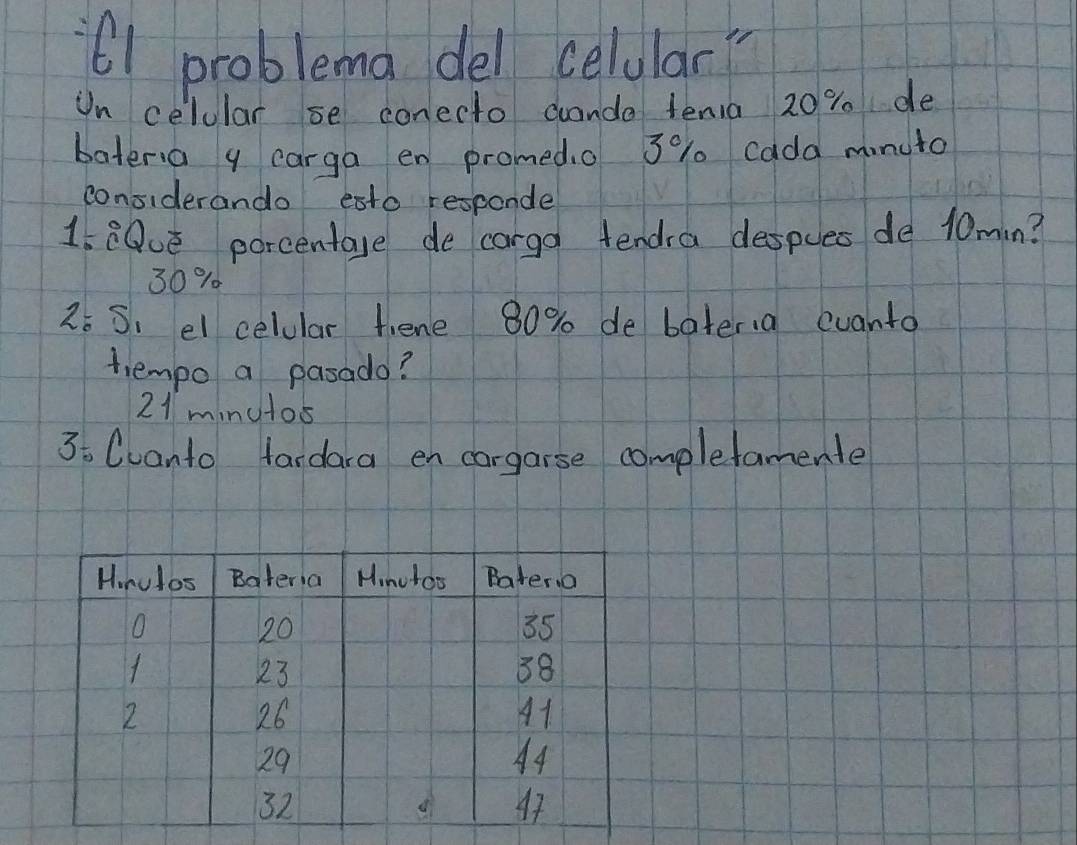 "El problema del celular"
Un celular se conecto cuando tenia 20% de
bateria y carga en promedio 3% cada minuto
considerando esto responde
1: ¿Qué porcentaje de carga tendra despues de 10min?
30%
2: Si el celular tiene 80% de bateria cuanto
tiempo a pasado?
21 minutos
3: Cuanto tardara en cargarse completamente
Minutos Bateria Minutos Bateria
0 20 35
1 23 38
2 26 41
29 44
32 47